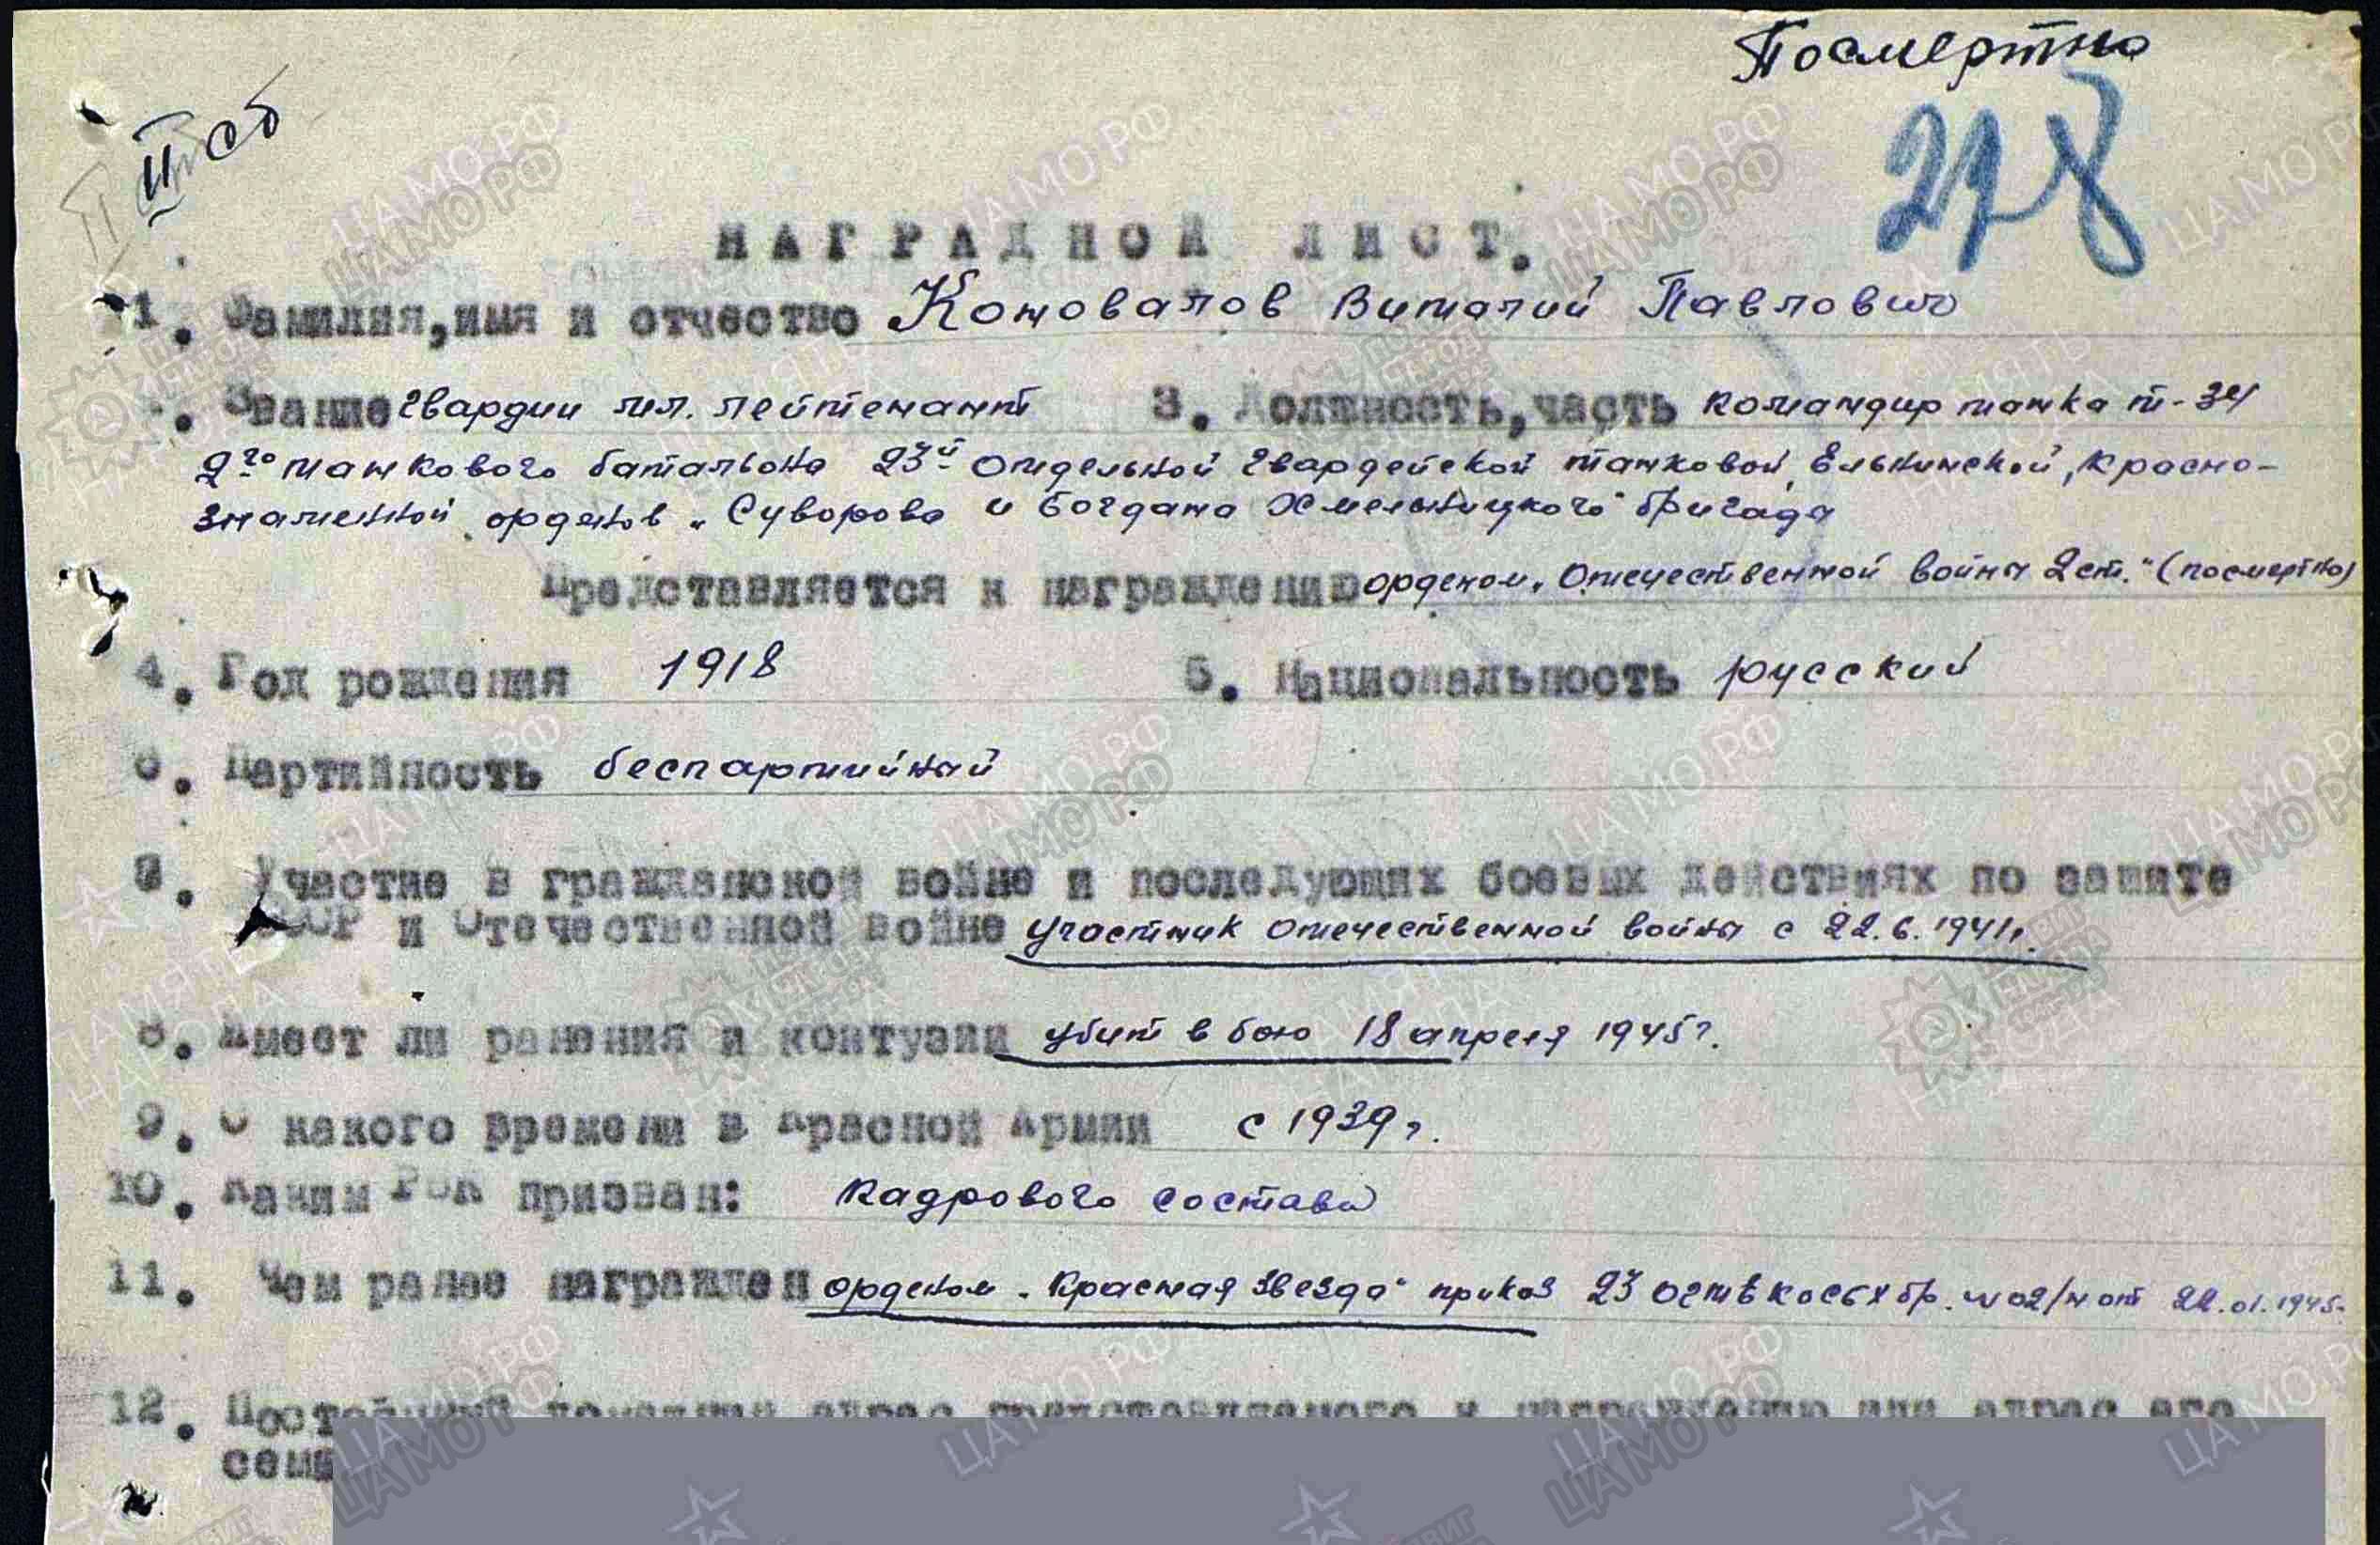 Посмертно
II сб
228
НАГРАДНОЙ ЛИСТ.
1. Фамилия, имя и отчество Коновалов Виталий Павлович
2. Звание гвардии мл. лейтенант 3. Должность, часть командир танка т-34
2го танкового батальона 23й отдельной гвардейской танковой, Ельнинской, красно-
знаменной орденов „Суворова и Богдана Хмельницкого" бригады
Представляется к награждению орденом „Отечественной войны 2 ст." (посмертно)
4. Год рождения 1918 5. Национальность русский
6. Партийность беспартийный
7. Участие в гражданской войне и последующих боевых действиях по защите
СССР и Отечественной войне участник отечественной войны с 22.6.1941г.
8. Имеет ли ранения и контузии убит в бою 18 апреля 1945г.
9. С какого времени в Красной Армии с 1939г.
10. Каким РВК призван: кадрового состава
11. Чем ранее награжден орденом „Красная звезда" приказ 23 огтвКОСБХбр. №02/н от 22.01.1945г.
12. Постоянный домашний адрес представляемого к награждению или адрес его
семьи